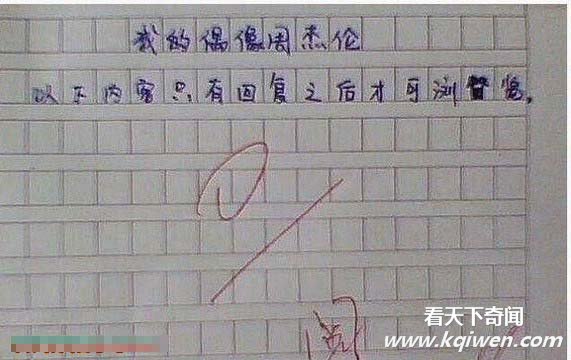 我的偶像周杰伦
以下内容只有回复之后才可浏览。
0
阅
看天下奇闻
www.kqiwen.com